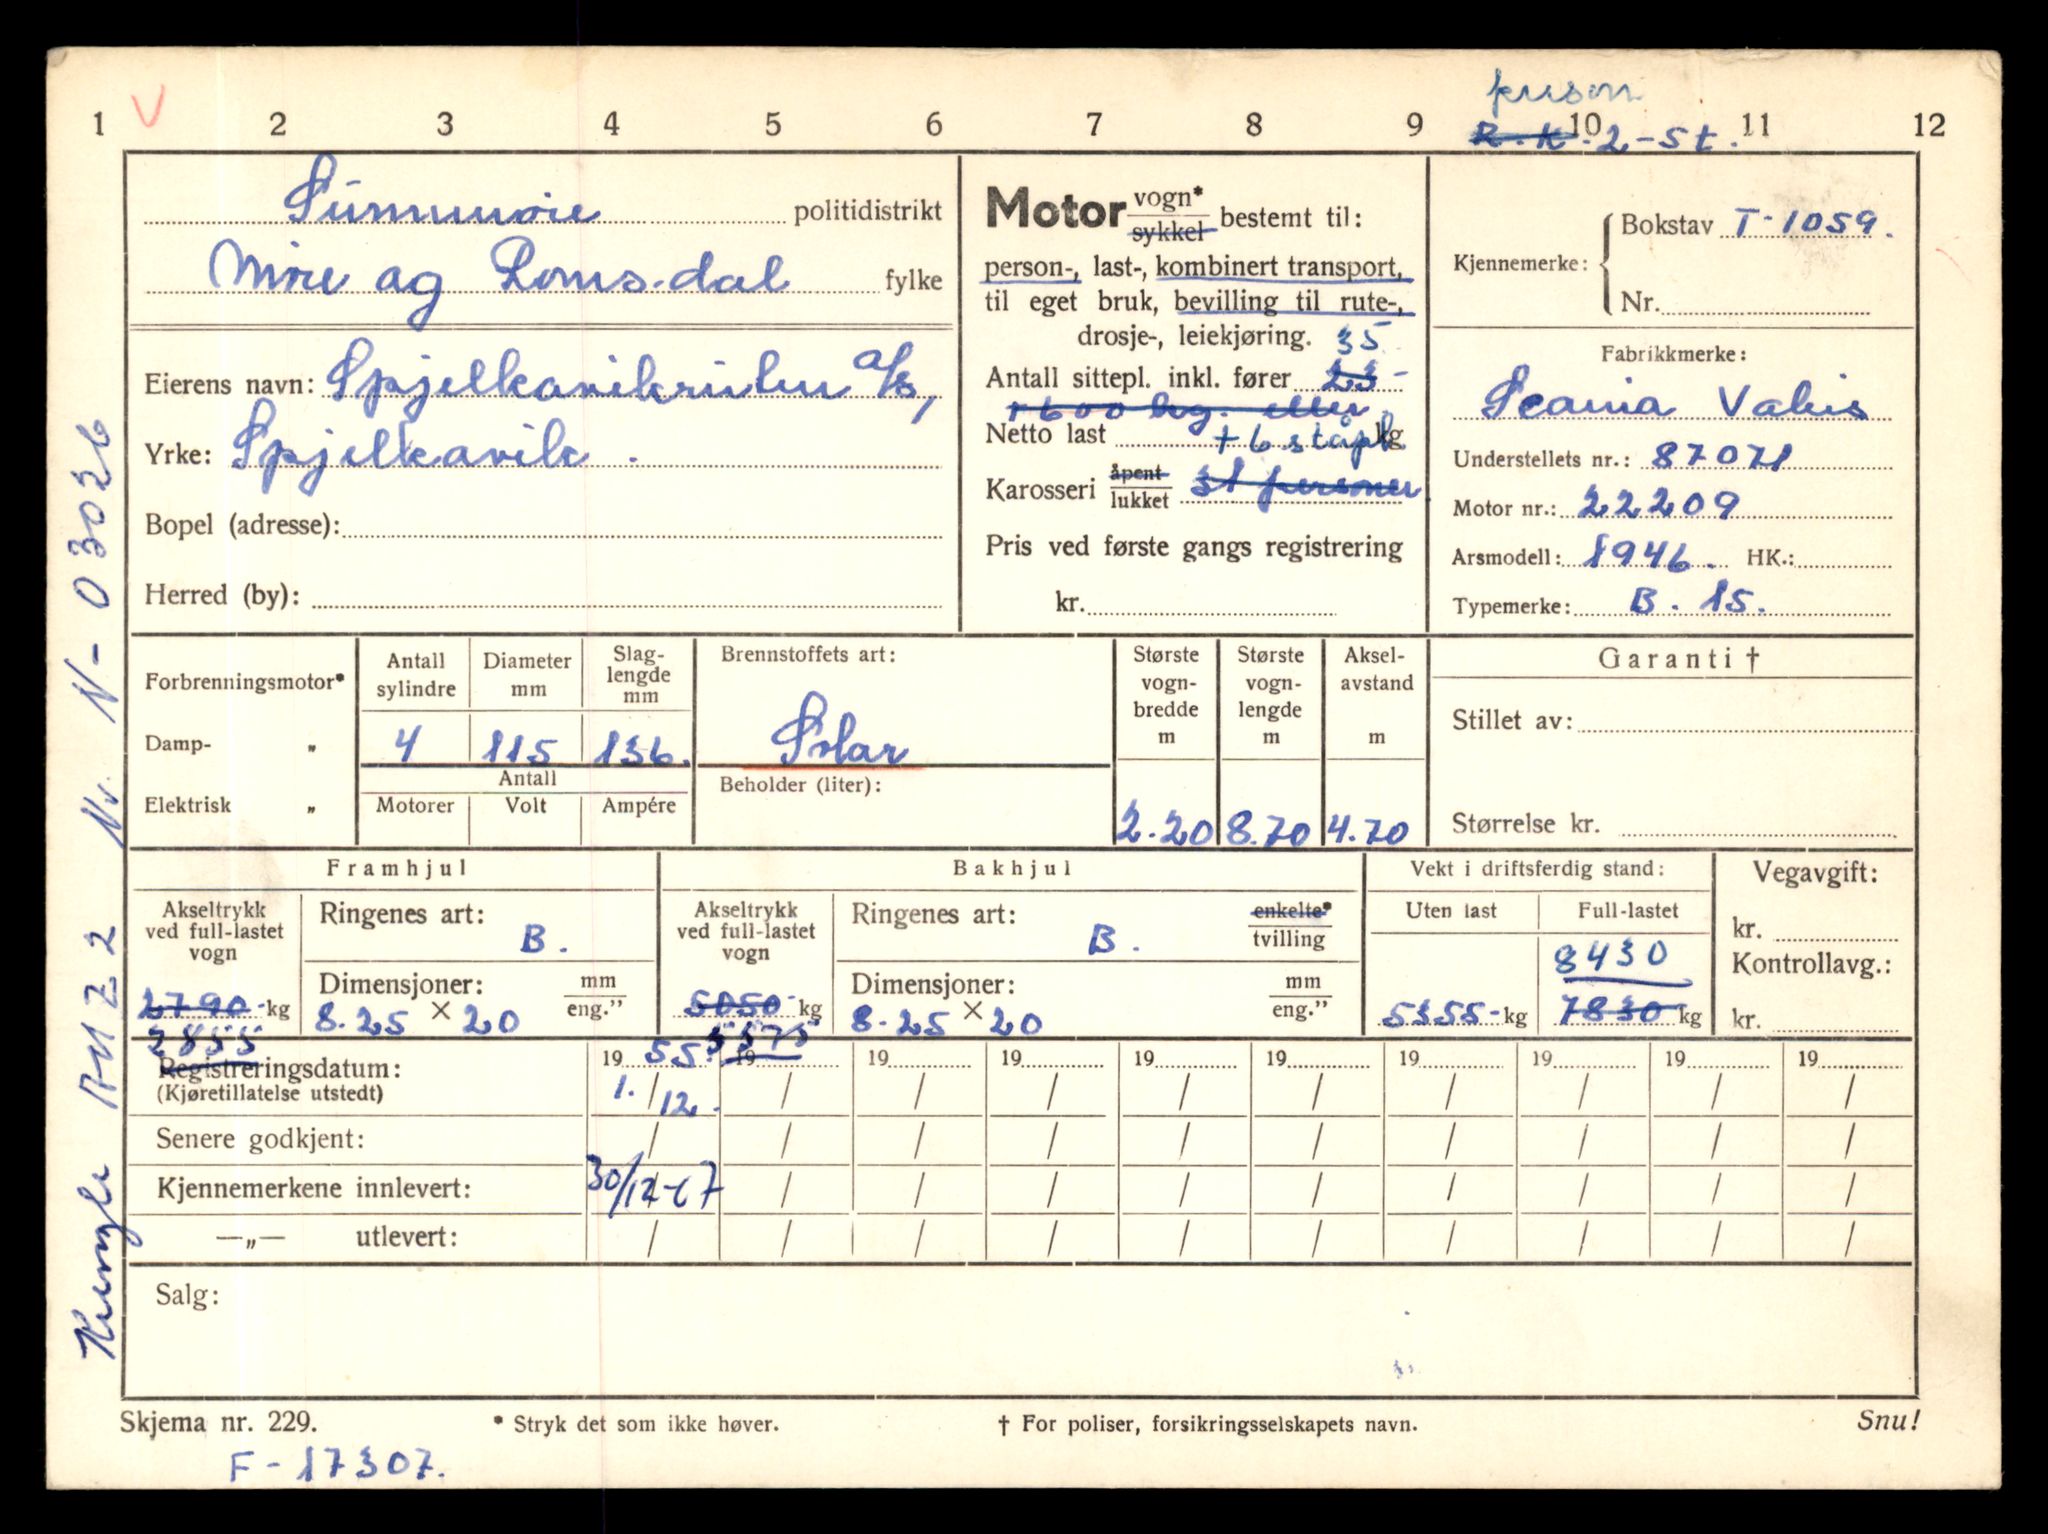 person
1 V 2 3 4 5 6 7 8 9 10 11 12
R.K. 2-st.
Sunnmøre politidistrikt
Møre og Romsdal fylke
Eierens navn: Spjelkavikruten a/s,
Yrke: Spjelkavik.
Bopel (adresse):
Herred (by):
Motor vogn* sykkel bestemt til:
person-, last-, kombinert transport,
til eget bruk, bevilling til rute-,
drosje-, leiekjøring. 35
Antall sittepl. inkl. fører 23-
1600 kg. eller
Netto last + 6 ståpl. kg
Karosseri åpent lukket 31 personer
Pris ved første gangs registrering
kr.
Kjennemerke: Bokstav T-1059.
Nr.
Fabrikkmerke:
Scania Vabis
Understellets nr.: 87071
Motor nr.: 22209
Arsmodell: 1946. HK.:
Typemerke: B. 15.
Forbrenningsmotor*
Damp- „
Elektrisk „
Antall sylindre Diameter mm Slag-lengde mm
4 115 136.
Antall
Motorer Volt Ampére
Brennstoffets art:
Solar
Beholder (liter):
Største vogn-bredde m Største vogn-lengde m Aksel-avstand m
2.20 8.70 4.70
Garanti †
Stillet av:
Størrelse kr.
Framhjul
Akseltrykk ved full-lastet vogn
2790- kg
2855
Ringenes art: B.
Dimensjoner: mm eng.”
8.25 × 20
Bakhjul
Akseltrykk ved full-lastet vogn
5050- kg
5575
Ringenes art: B. enkelte* tvilling
Dimensjoner: mm eng.”
8.25 × 20
Vekt i driftsferdig stand:
Uten last Full-lastet
8430
5355- kg 7830 kg
Vegavgift:
kr.
Kontrollavg.:
kr.
Registreringsdatum: 19 55. 19 19 19 19 19 19 19 19 19
(Kjøretillatelse utstedt) 1. / 12. / / / / / / / / /
Senere godkjent: / / / / / / / / / /
Kjennemerkene innlevert: 30/12-67 / / / / / / / / /
—„— utlevert: / / / / / / / / / /
Salg:
Skjema nr. 229. * Stryk det som ikke høver. † For poliser, forsikringsselskapets navn. Snu!
F-17307.
Nr. N-03026